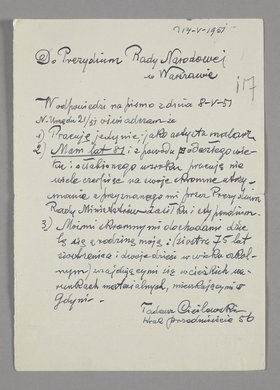 14-V-1951
Do Prezydium Rady Narodowej
w Warszawie
W odpowiedzi na pismo z dnia 8-V-51
oświadczam że
1) Pracuję jedynie jako artysta malarz
2) Mam lat 81 i z powodu podeszłego wie-
ku i osłabionego wzroku pracuję nie
wiele czerpiąc na swoje skromne utrzy-
manie z przyznanego mi przez Prezydium
Rady Ministrów zasiłku i stypendium.
3) Moimi skromnymi dochodami dzie-
lę się z rodziną moją: siostra 75 lat
siostrzenica i dwoje dzieci w wieku szkol-
nym, znajdującymi się w ciężkich wa-
runkach materialnych, mieszkającymi w
Gdyni -
Tadeusz Cieślewski
Krak. Przedmieście 56